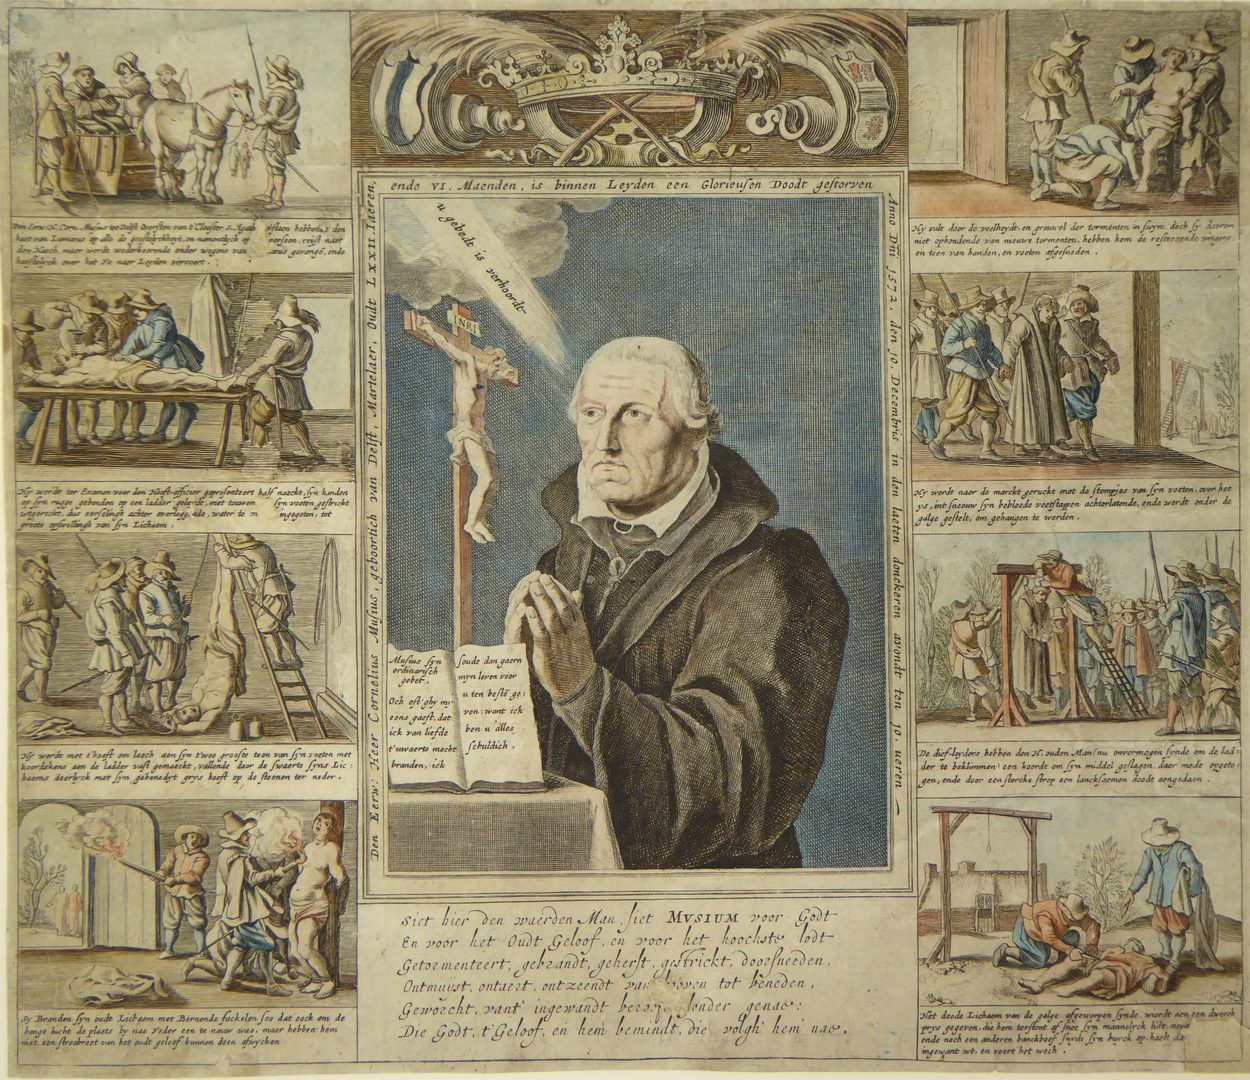 Den Eerw. Heer Cornelius Musius, geboortich van Delft, Martelaer, Oudt LXXII Iaeren,
ende VI. Maenden, is binnen Leyden een Glorieusen Doodt gestorven
Anno Dñi 1572. den 10. Decembris in den laeten donckeren avondt ten 10 ueren
u gebedt is verhoordt
INRI
Musius syn
ordinarisch
gebet.
Och oft ghy my
eens gaeft, dat
ick van liefde
t'uwaerts mocht
branden, ick
soude dan gaern
myn leven voor
u ten beste ge:
ven: want ick
ben u alles
schuldich.
Siet hier den waerden Man, siet MVSIUM voor Godt
En voor het Oudt Geloof, en voor het hoochste lodt
Getormenteert, gebrandt, geherst, gestrickt, doorsneeden,
Ontmuist, ontaert, ontzeendt van boven tot beneden,
Geworcht, vant' ingewandt sonder genae:
Die Godt, t'Geloof, en hem bemindt, die volgh' hem nae.
Den Eerw. H. Corn. Musius tot Delft Oversten van t'Clooster S. Agath
haet van Lumæus op alle de geestelyckheyt, en namentlyck op persoon, reyst naer
den Haech, maer werdt wederkeerende onder wegens van gevangē, ende
heestelyck over het Ys naer Leyden vervoert.
Hy wordt ter Examen voor den Hooft-officier gepresenteert half naeckt, syn handen
op syn rugge gebonden op een ladder geleydt, met touwen syn voeten gestrickt
uytgereckt, dus eerselingh achter overlegg. ingegoten, tot
groote opswellingh van syn Lichaem.
Hy werdt met t'hooft om laech aen syn twee grootste teen van syn voeten met
koordekens aen de ladder vast gemaeckt, vallende door de swaerte syns Lic:
haems deerlyck met syn gebenedyt grys hooft op de steenen ter neder.
Sy Branden syn oudt Lichaem met Barnende fackelen soo dat oock om de
bange lucht de plaets by nae Yeder een te nauw was, maer hebben hem
niet een stroobreet van het oudt geloof kunnen doen afwycken
Hy valt door de veelheydt, en grouwel der tormenten in swym, doch sy daerom
niet ophoudende van nieuwe tormenten, hebben hem de resteerende vingers
en teen van handen, en voeten afgesneden.
Hy werdt naer de marckt geruckt met de stompjes van syn voeten, over het
ys, int sneeuw syn bebloede voetstappen achterlatende, ende wordt onder de
galge gestelt, om gehangen te worden.
De dief-leyders hebben den H. ouden Man (nu onvermogen synde om de lad:
der te beklimmen) een koordt om syn middel geslagen, daer mede opgeto:
gen, ende door een stercke strop een lancksoemen doodt aengedaen.
Het doode Lichaem van de galge afgeworpen synde, wierdt aen een dwerch
prys gegeven, die hem terstont af snee syn
ende noch een anderen banckboef snydt syn buyck op, haelt da
ingewant uyt, en voert het wech.